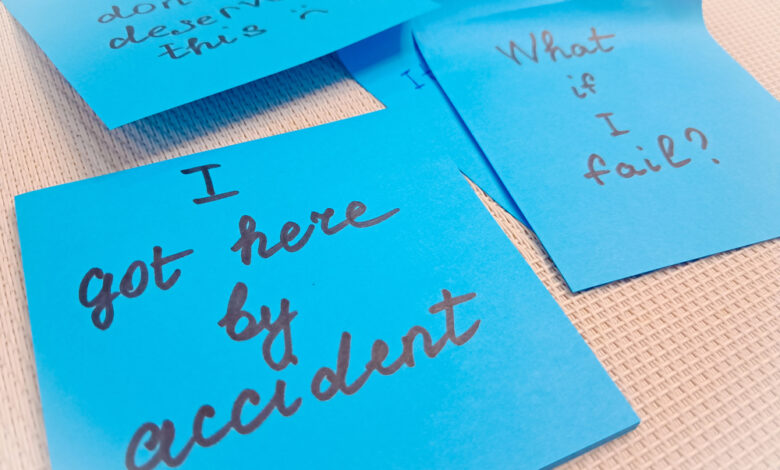 don
deserv
this :(
What
if
I
fail?
I
I
got here
by
accident